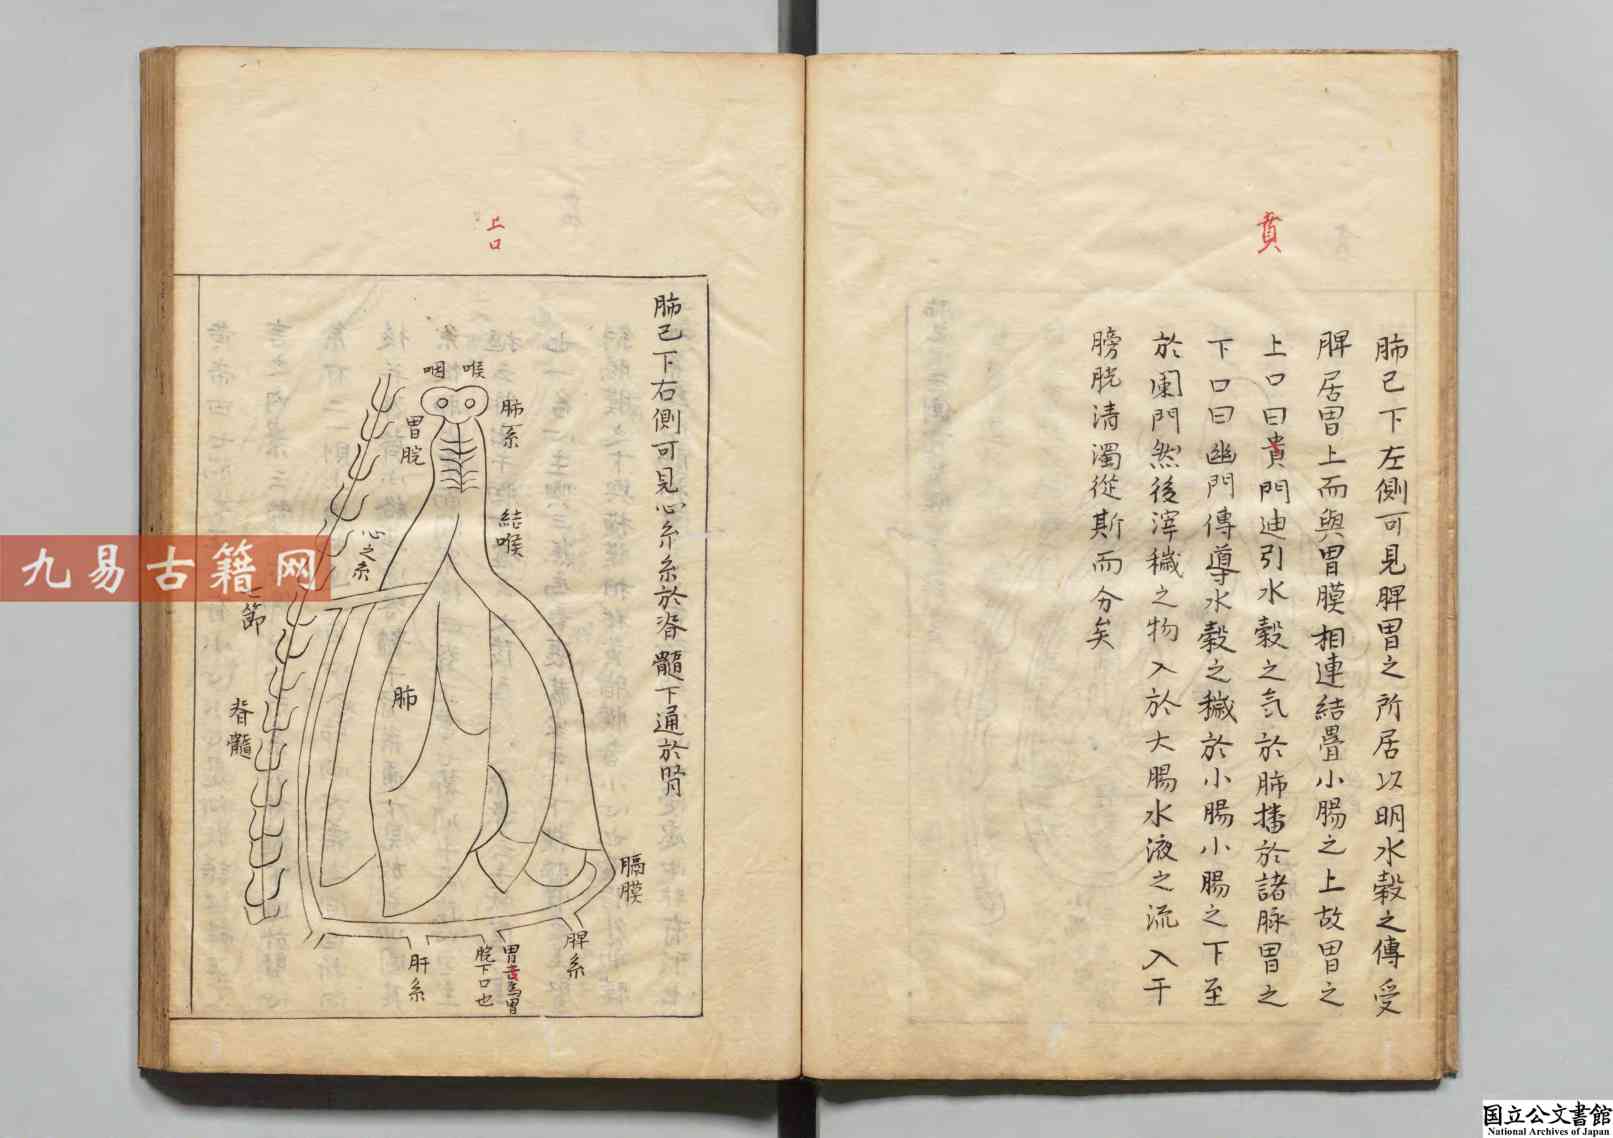 賁
肺已下左側可見脾胃之所居以明水穀之傳受
脾居胃上而與胃膜相連結疊小腸之上故胃之
上口曰貴門迪引水穀之气於肺播於諸脉胃之
下口曰幽門傳導水穀之穢於小腸小腸之下至
於闌門然後滓穢之物入於大腸水液之流入于
膀胱清濁從斯而分矣
上口
肺已下右側可見心系系於脊髓下通於腎
咽
喉
肺系
胃脘
結喉
心之系
七節
肺
脊髓
膈膜
脾系
脘下口也
肝系
九易古籍网
国立公文書館
National Archives of Japan